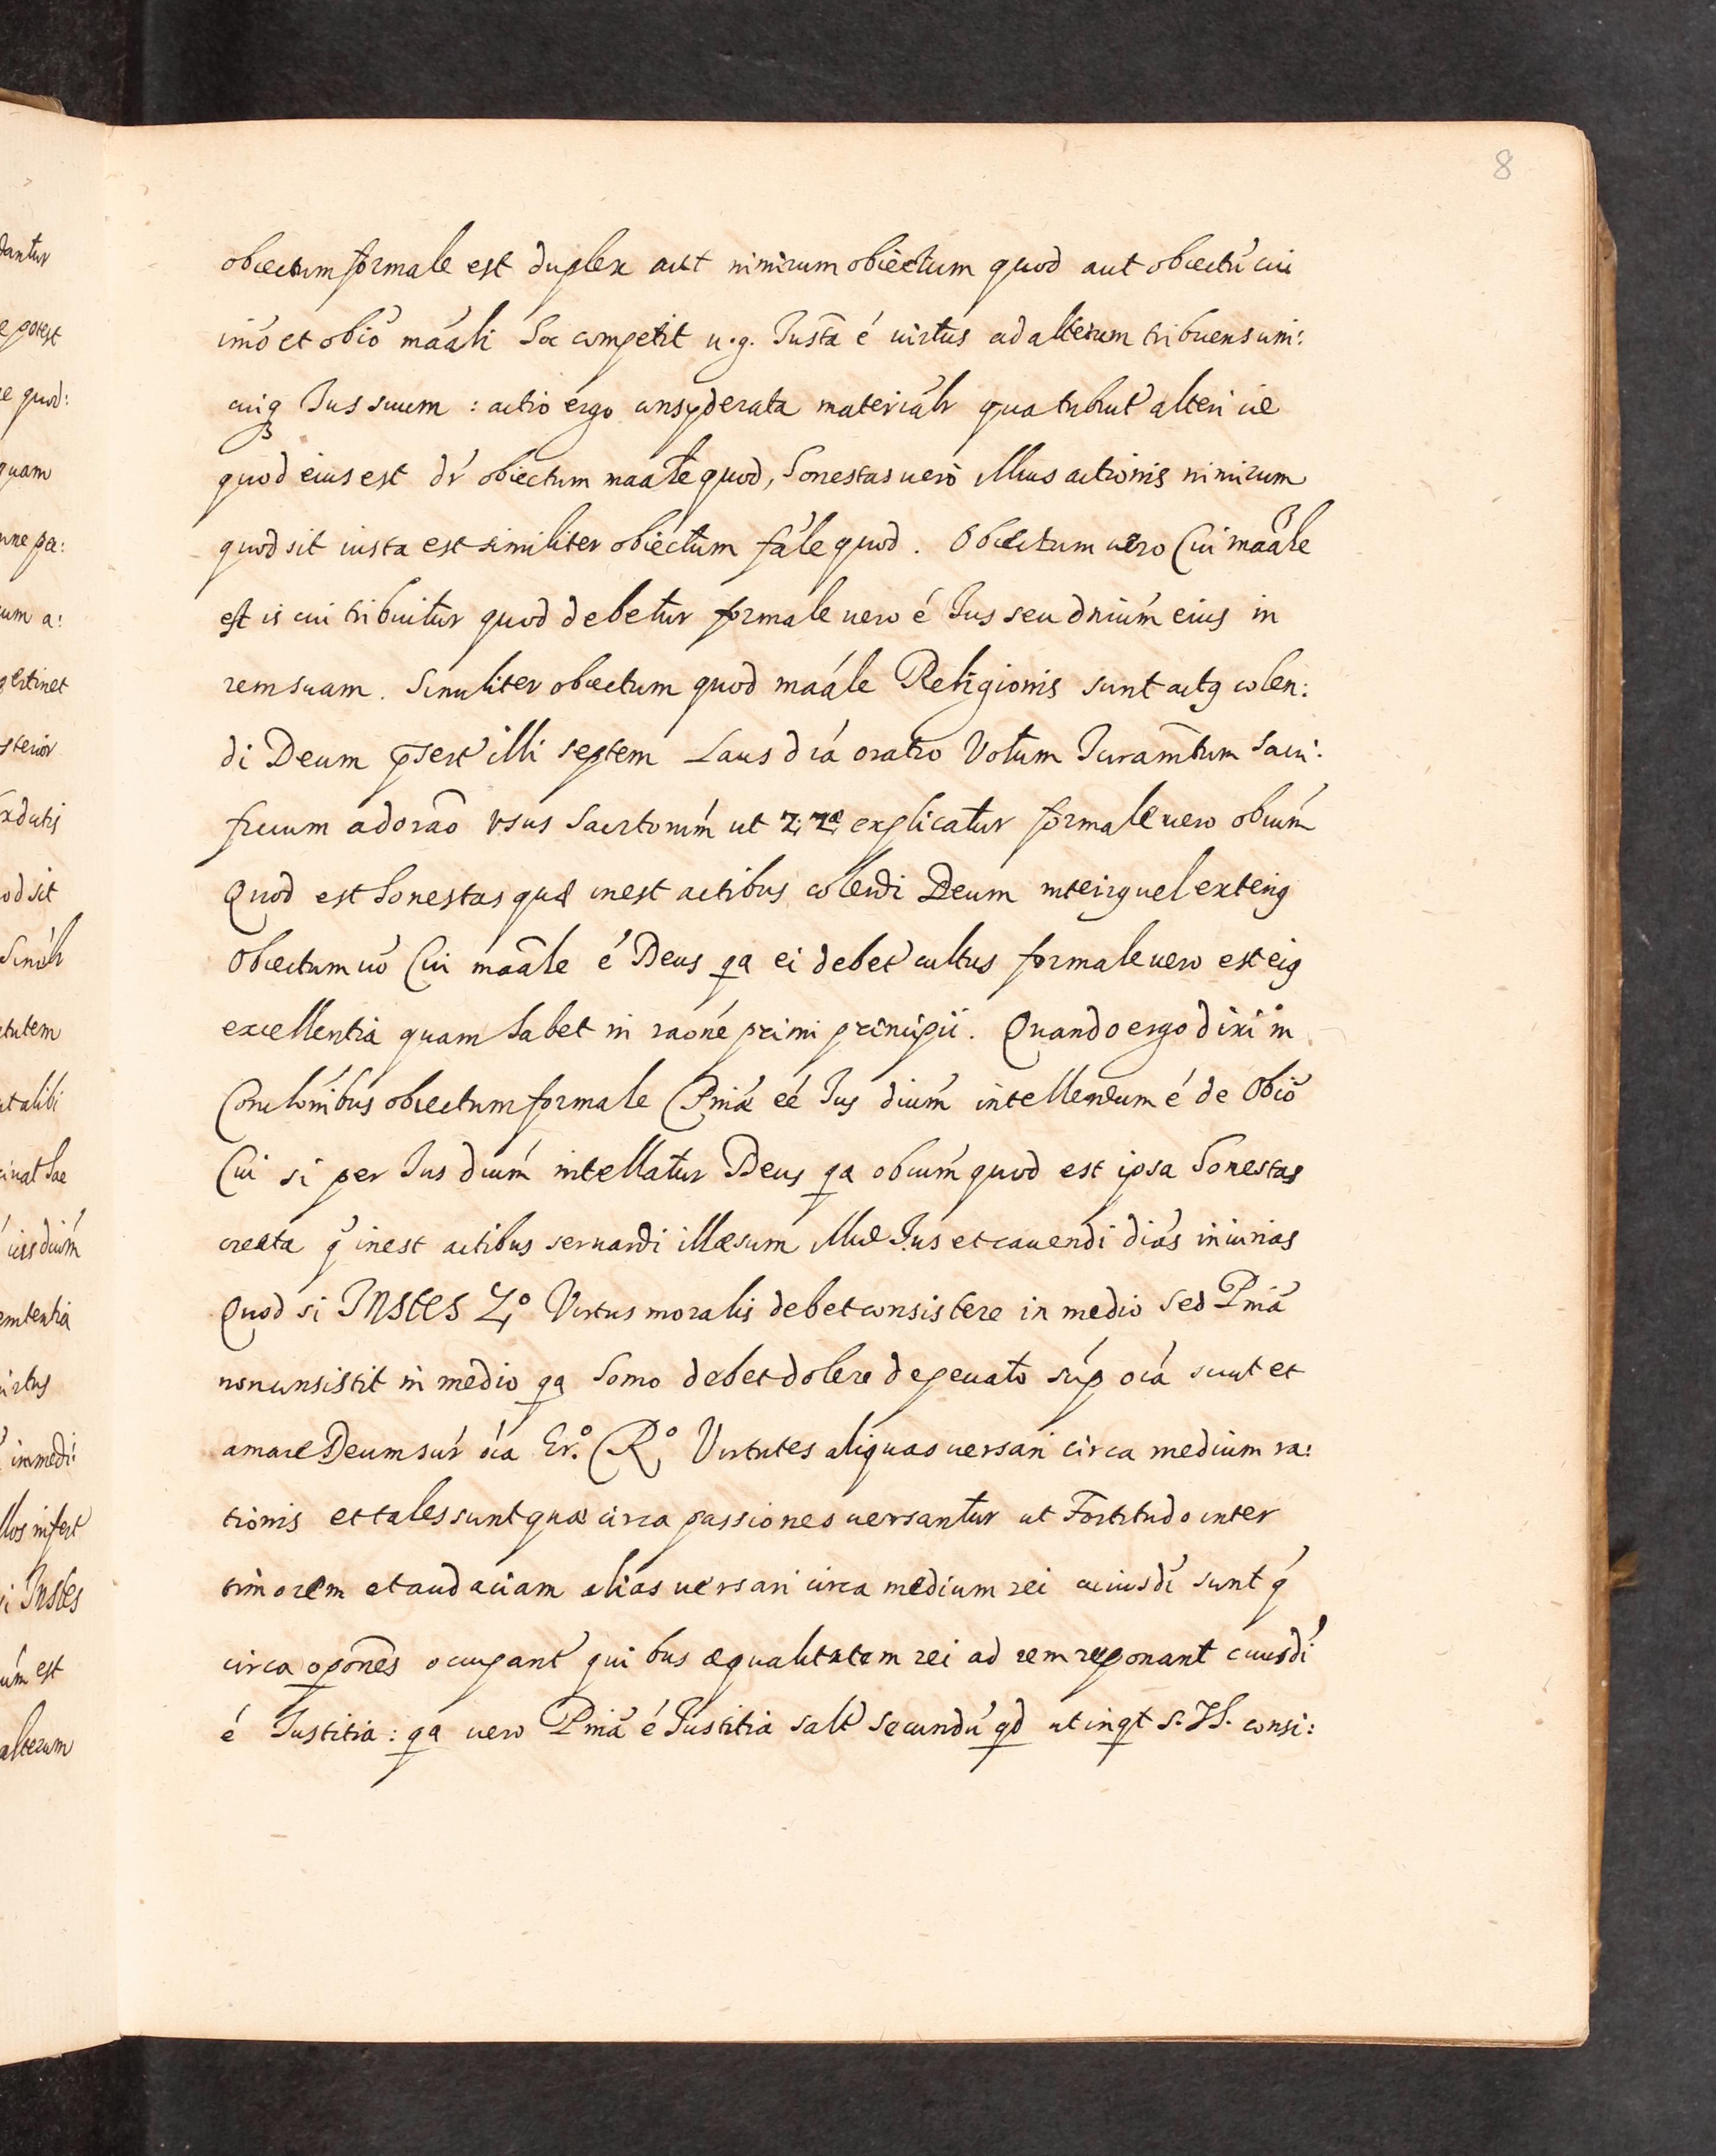 8
obiectum formale est duplex aut nimirum obiectum quod aut obiectú cui
imó et obió maáli hoc competit u.g. Justã é uirtus ad alterum tribuens uni:
cuiq Jus suum : actio ergo consyderata materiálr qua tribut alteri id
quod eius est dŕ obiectum maále quod, honestas uero illius actionis nimirum
quod sit iusta est similiter obiectum fále quod . Obiectum uero Cui maále
est is cui tribuitur quod debetur formale uero é Jus seu dniúm eius in
rem suam . Similiter obiectum quod maále Religionis sunt actq colen:
di Deum illi septem Laus diá oratio Votum Juramtum sacri:
ficium adoraõ Vsus Sacrtorúm ut explicatur formale uero obiúm
Quod est honestas quæ inest actibus colendi Deum interiq uel exteriq
Obiectum uó Cui maãle é Deus qa ei debet cultus formale uero est eiq
excellentia quam habet in raoné primi principii . Quando ergo dixi in
Conclónibus obiectum formale Pniæ eé Jus diúm intellendum é de Obió
Cui si per Jus diuúm intellatur Deus qa obiúm quod est ipsa honestas
creata q́ inest actibus seruandi illæsum illud Jus et cauendi diás iniurias
Quod si INSTES 4º Virtus moralis debet consistere in medio sed Pniá
non consistit in medio qa homo debet dolere de peccato súp oiá sicut et
amare Deum súr óia Er.º Rº Virtutes aliquas uersari circa medium ra:
tionis et tales sunt quæ circa passiones uersantur ut Fortitudo inter
timorem et audaciam alias uersari circa medium rei cuiusdi sunt q́
circa oponẽs ocupant qui bus æqualitatem rei ad rem reponant cuiusdí
é Justitia : qa uero Pniá é Justitia salt́ secundú qd ut inqt S. Th. consi: